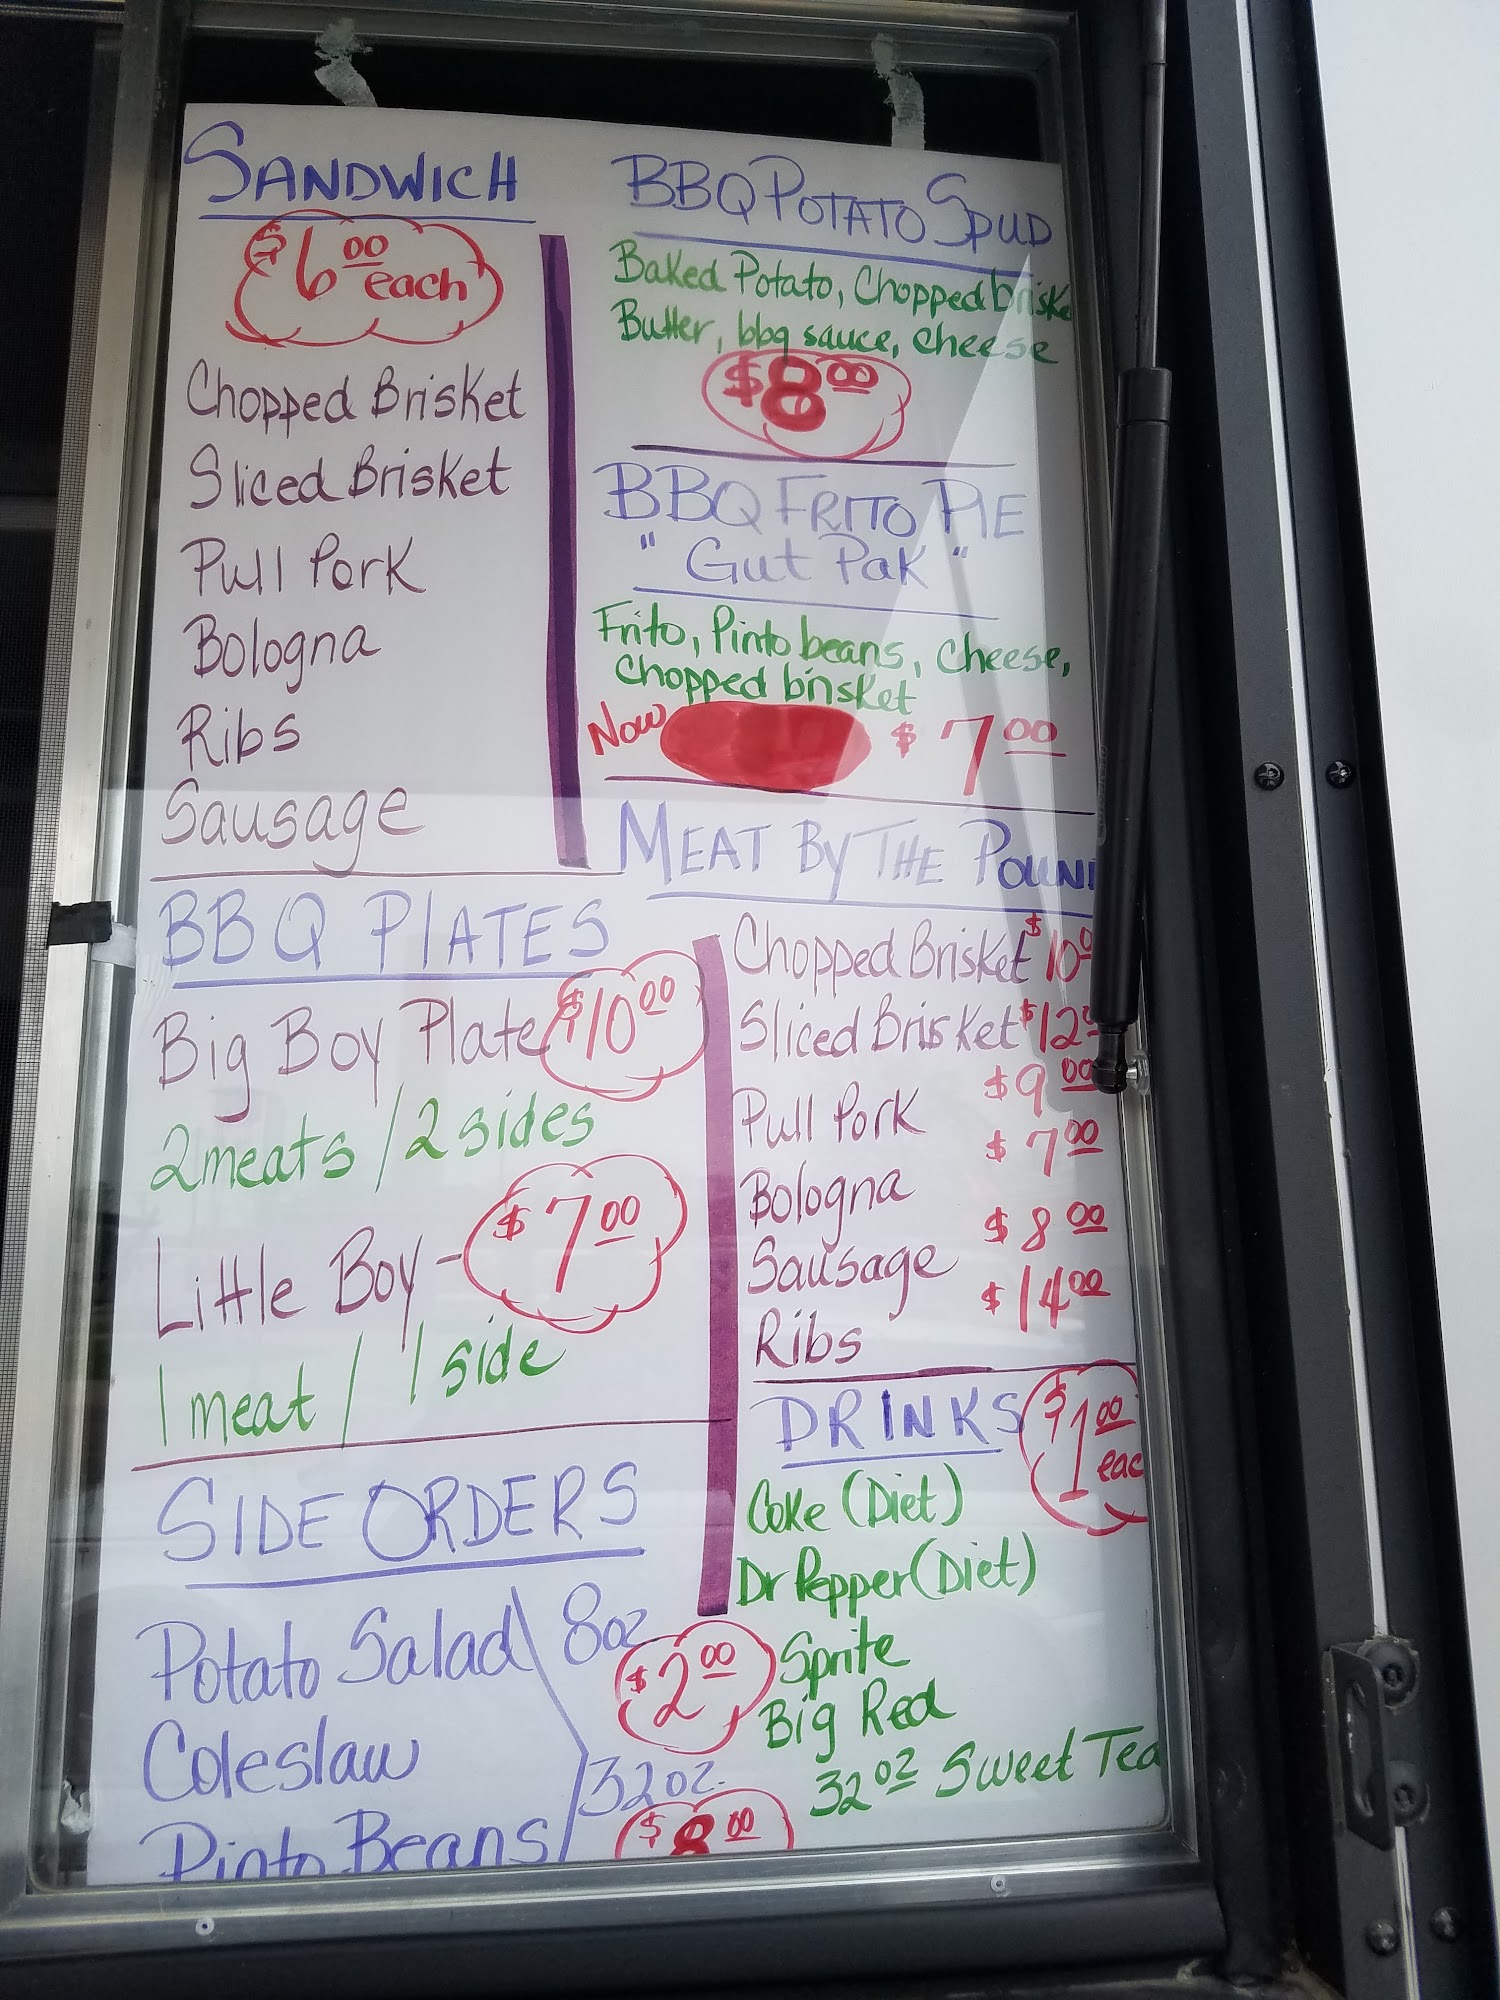 SANDWICH
$6.00 each
Chopped Brisket
Sliced Brisket
Pull Pork
Bologna
Ribs
Sausage
BBQ PLATES
Big Boy Plate $10.00
2 meats / 2 sides
Little Boy - $7.00
1 meat / 1 side
SIDE ORDERS
Potato Salad 8oz
$2.00
Coleslaw
32oz.
Pinto Beans $8.00
BBQ POTATO SPUD
Baked Potato, Chopped briske
Butter, bbq sauce, cheese
$8.00
BBQ FRITO PIE
"Gut Pak"
Frito, Pinto beans, cheese,
chopped brisket
Now $7.00
MEAT BY THE POUN
Chopped Brisket $10.0
Sliced Brisket $12.0
Pull Pork $9.00
Bologna $7.00
Sausage $8.00
Ribs $14.00
DRINKS $1.00 eac
Coke (Diet)
Dr Pepper (Diet)
Sprite
Big Red
32oz Sweet Tea